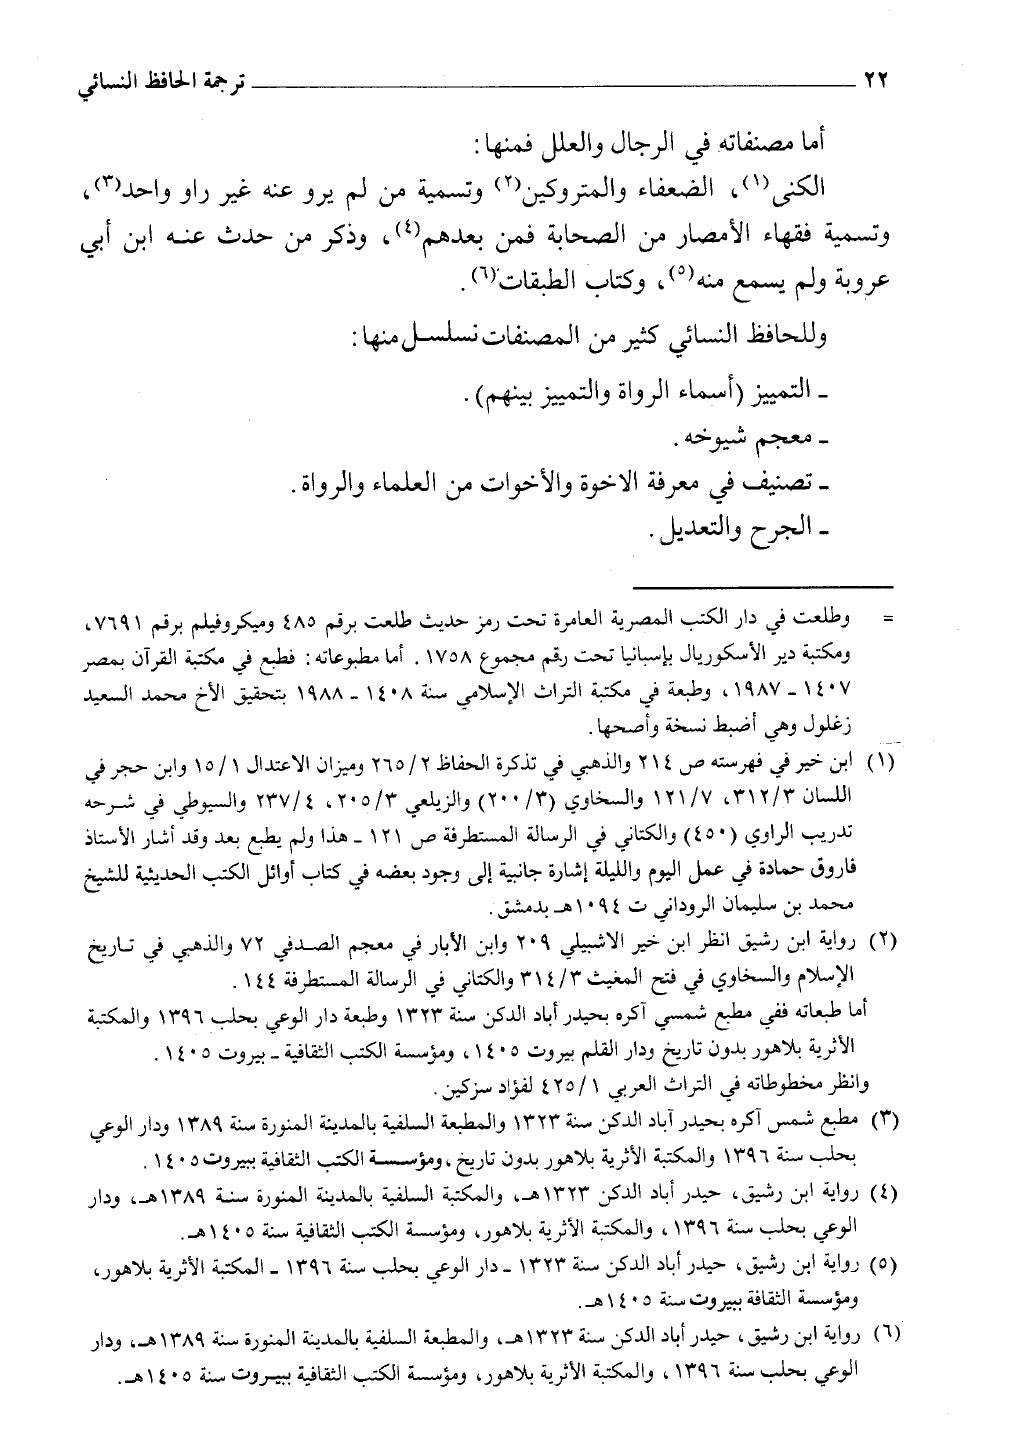 ٢٢ ـــــــ ترجمة الحافظ النسائي
أما مصنفاته في الرجال والعلل فمنها:
الكنى(١)، الضعفاء والمتروكين(٢) وتسمية من لم يرو عنه غير راو واحد(٣)،
وتسمية فقهاء الأمصار من الصحابة فمن بعدهم(٤)، وذكر من حدث عنه ابن أبي
عروبة ولم يسمع منه(٥)، وكتاب الطبقات(٦).
وللحافظ النسائي كثير من المصنفات نسلسل منها:
ـ التمييز (أسماء الرواة والتمييز بينهم).
ـ معجم شيوخه.
ـ تصنيف في معرفة الاخوة والأخوات من العلماء والرواة.
ـ الجرح والتعديل.
= وطلعت في دار الكتب المصرية العامرة تحت رمز حديث طلعت برقم ٤٨٥ وميكروفيلم برقم ٧٦٩١،
ومكتبة دير الأسكوريال بإسبانيا تحت رقم مجموع ١٧٥٨. أما مطبوعاته: فطبع في مكتبة القرآن بمصر
١٤٠٧ ـ ١٩٨٧، وطبعة في مكتبة التراث الإسلامي سنة ١٤٠٨ ـ ١٩٨٨ بتحقيق الأخ محمد السعيد
زغلول وهي أضبط نسخة وأصحها.
(١) ابن خير في فهرسته ص ٢١٤ والذهبي في تذكرة الحفاظ ٢/٢٦٥ وميزان الاعتدال ١/١٥ وابن حجر في
اللسان ٣/٣١٢، ٧/١٢١ والسخاوي (٣/٢٠٠) والزيلعي ٣/٢٠٥، ٤/٢٣٧ والسيوطي في شرحه
تدريب الراوي (٤٥٠) والكتاني في الرسالة المستطرفة ص ١٢١ ـ هذا ولم يطبع بعد وقد أشار الأستاذ
فاروق حمادة في عمل اليوم والليلة إشارة جانبية إلى وجود بعضه في كتاب أوائل الكتب الحديثية للشيخ
محمد بن سليمان الروداني ت ١٠٩٤هـ بدمشق.
(٢) رواية ابن رشيق انظر ابن خير الاشبيلي ٢٠٩ وابن الأبار في معجم الصدفي ٧٢ والذهبي في تاريخ
الإسلام والسخاوي في فتح المغيث ٣/٣١٤ والكتاني في الرسالة المستطرفة ١٤٤.
أما طبعاته ففي مطبع شمسي آكره بحيدر أباد الدكن سنة ١٣٢٣ وطبعة دار الوعي بحلب ١٣٩٦ والمكتبة
الأثرية بلاهور بدون تاريخ ودار القلم بيروت ١٤٠٥، ومؤسسة الكتب الثقافية ـ بيروت ١٤٠٥.
وانظر مخطوطاته في التراث العربي ١/٤٢٥ لفؤاد سزكين.
(٣) مطبع شمس آكره بحيدر آباد الدكن سنة ١٣٢٣ والمطبعة السلفية بالمدينة المنورة سنة ١٣٨٩ ودار الوعي
بحلب سنة ١٣٩٦ والمكتبة الأثرية بلاهور بدون تاريخ، ومؤسسة الكتب الثقافية ببيروت ١٤٠٥.
(٤) رواية ابن رشيق، حيدر أباد الدكن ١٣٢٣هـ، والمكتبة السلفية بالمدينة المنورة سنة ١٣٨٩هـ، ودار
الوعي بحلب سنة ١٣٩٦، والمكتبة الأثرية بلاهور، ومؤسسة الكتب الثقافية سنة ١٤٠٥هـ.
(٥) رواية ابن رشيق، حيدر أباد الدكن سنة ١٣٢٣ ـ دار الوعي بحلب سنة ١٣٩٦ ـ المكتبة الأثرية بلاهور،
ومؤسسة الثقافة ببيروت سنة ١٤٠٥هـ.
(٦) رواية ابن رشيق، حيدر أباد الدكن سنة ١٣٢٣هـ، والمطبعة السلفية بالمدينة المنورة سنة ١٣٨٩هـ، ودار
الوعي بحلب سنة ١٣٩٦، والمكتبة الأثرية بلاهور، ومؤسسة الكتب الثقافية ببيروت سنة ١٤٠٥هـ.